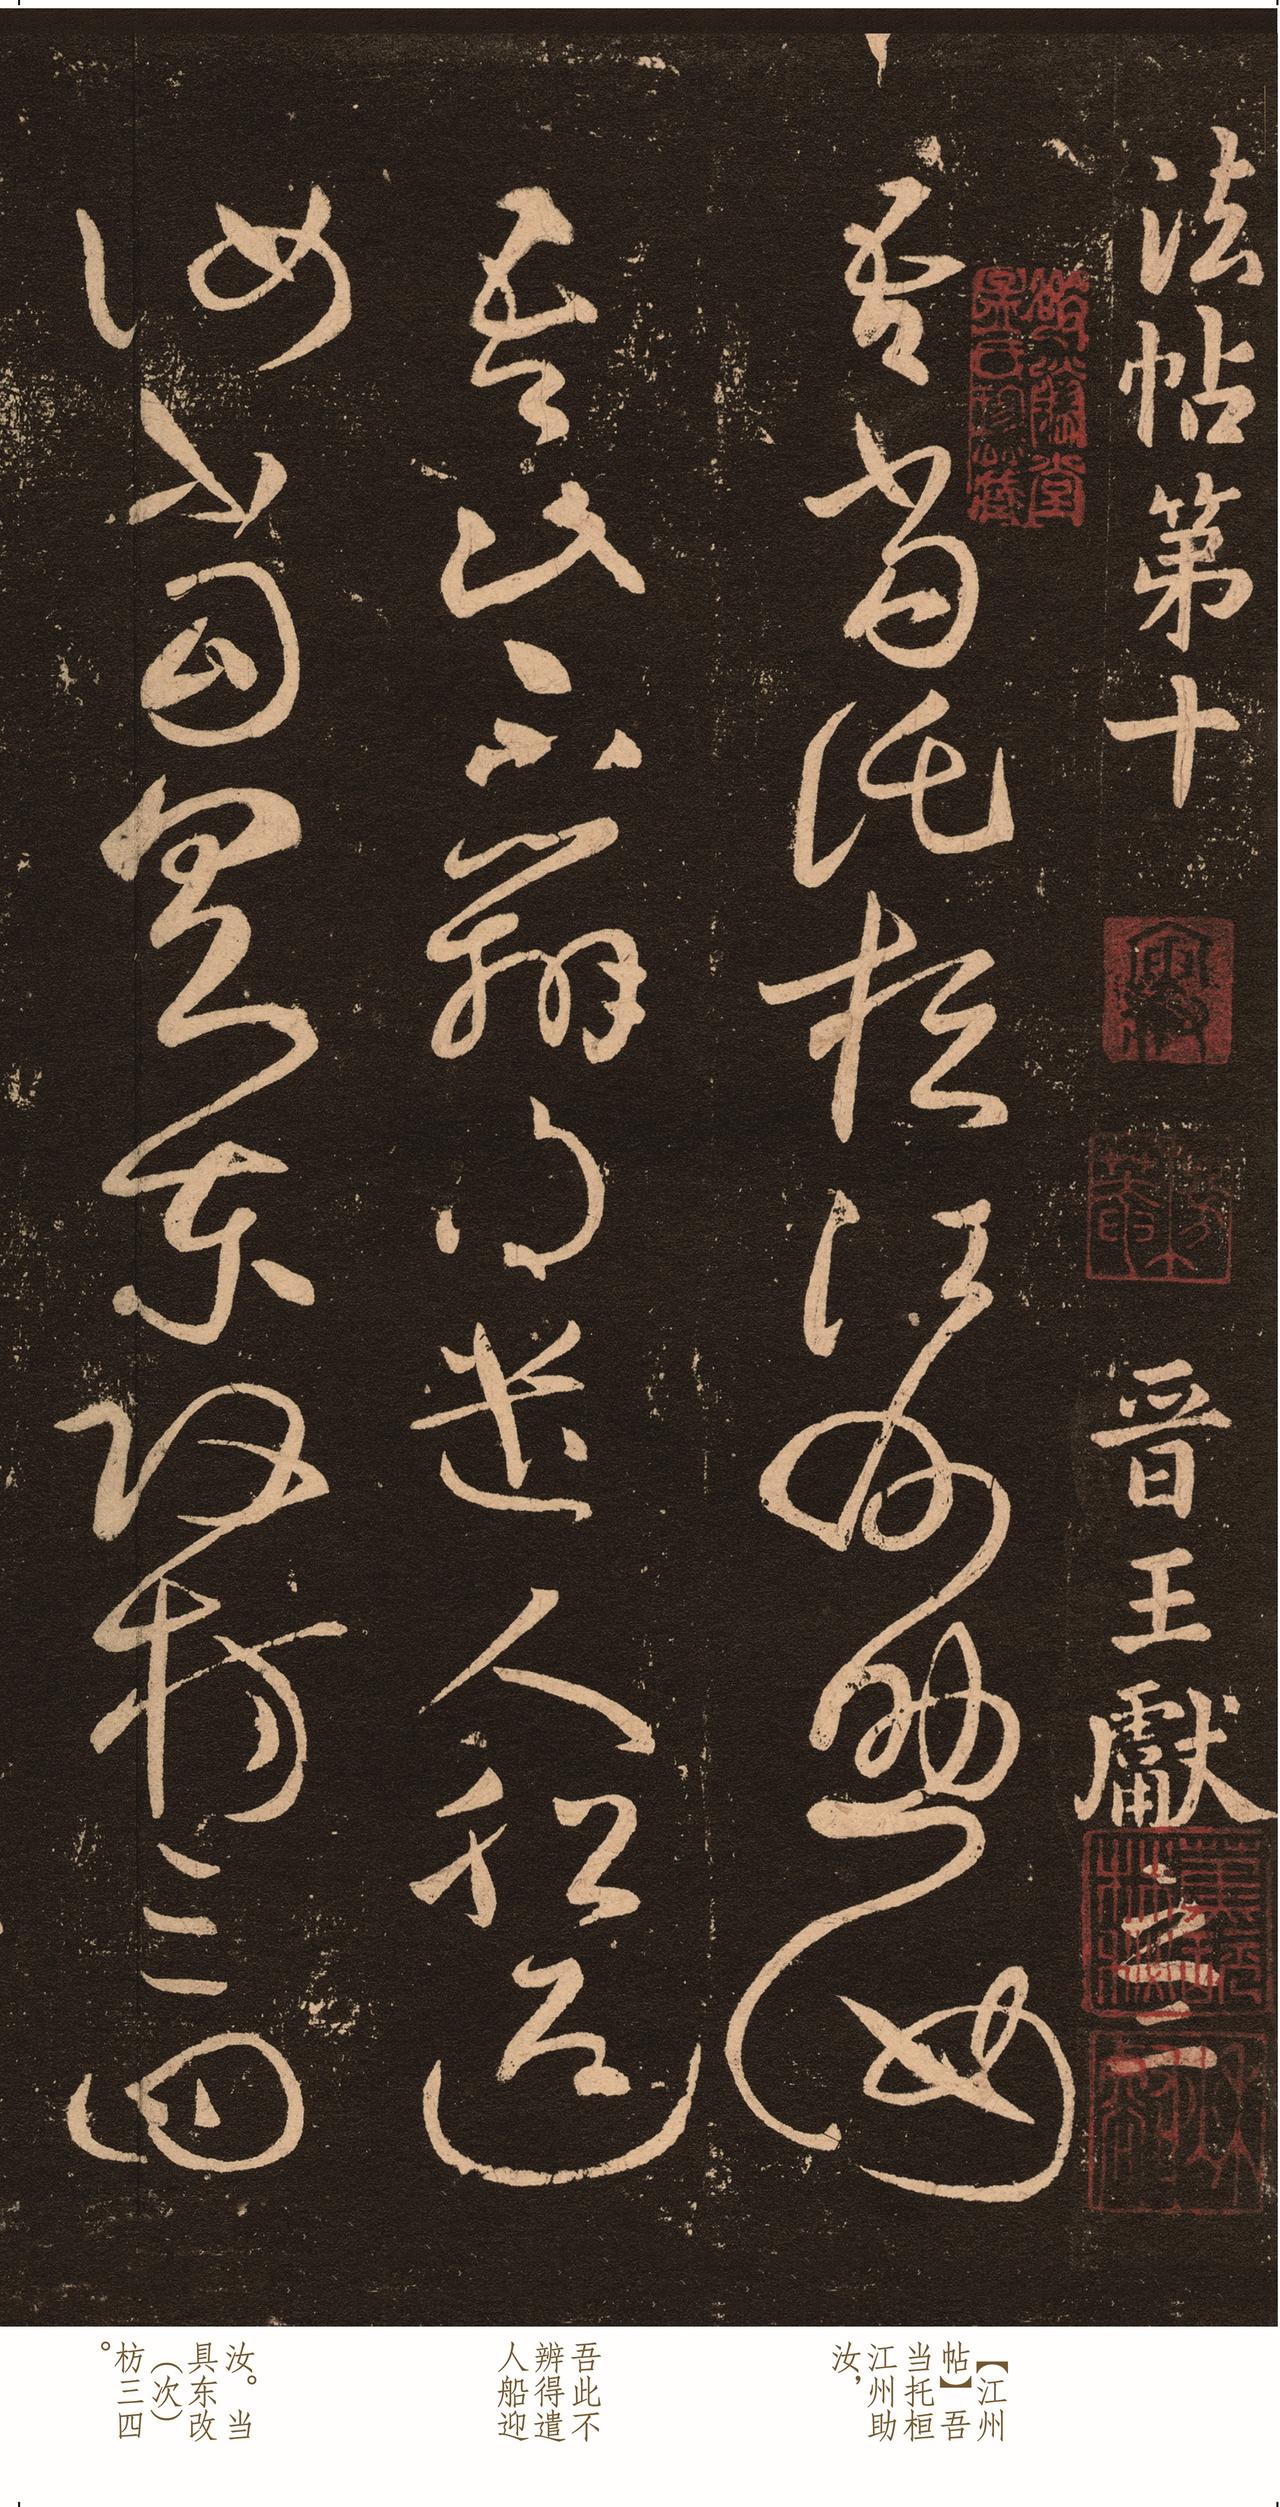 法帖第十 晋王獻之二
吾当託桓江州助汝
吾此不辨得遣人船迎
汝当具東改枋三四
【江州
帖】吾
当托桓
江州助
汝，
吾此不
辨得遣
人船迎
汝。当
具东改
（次）
枋三四
。